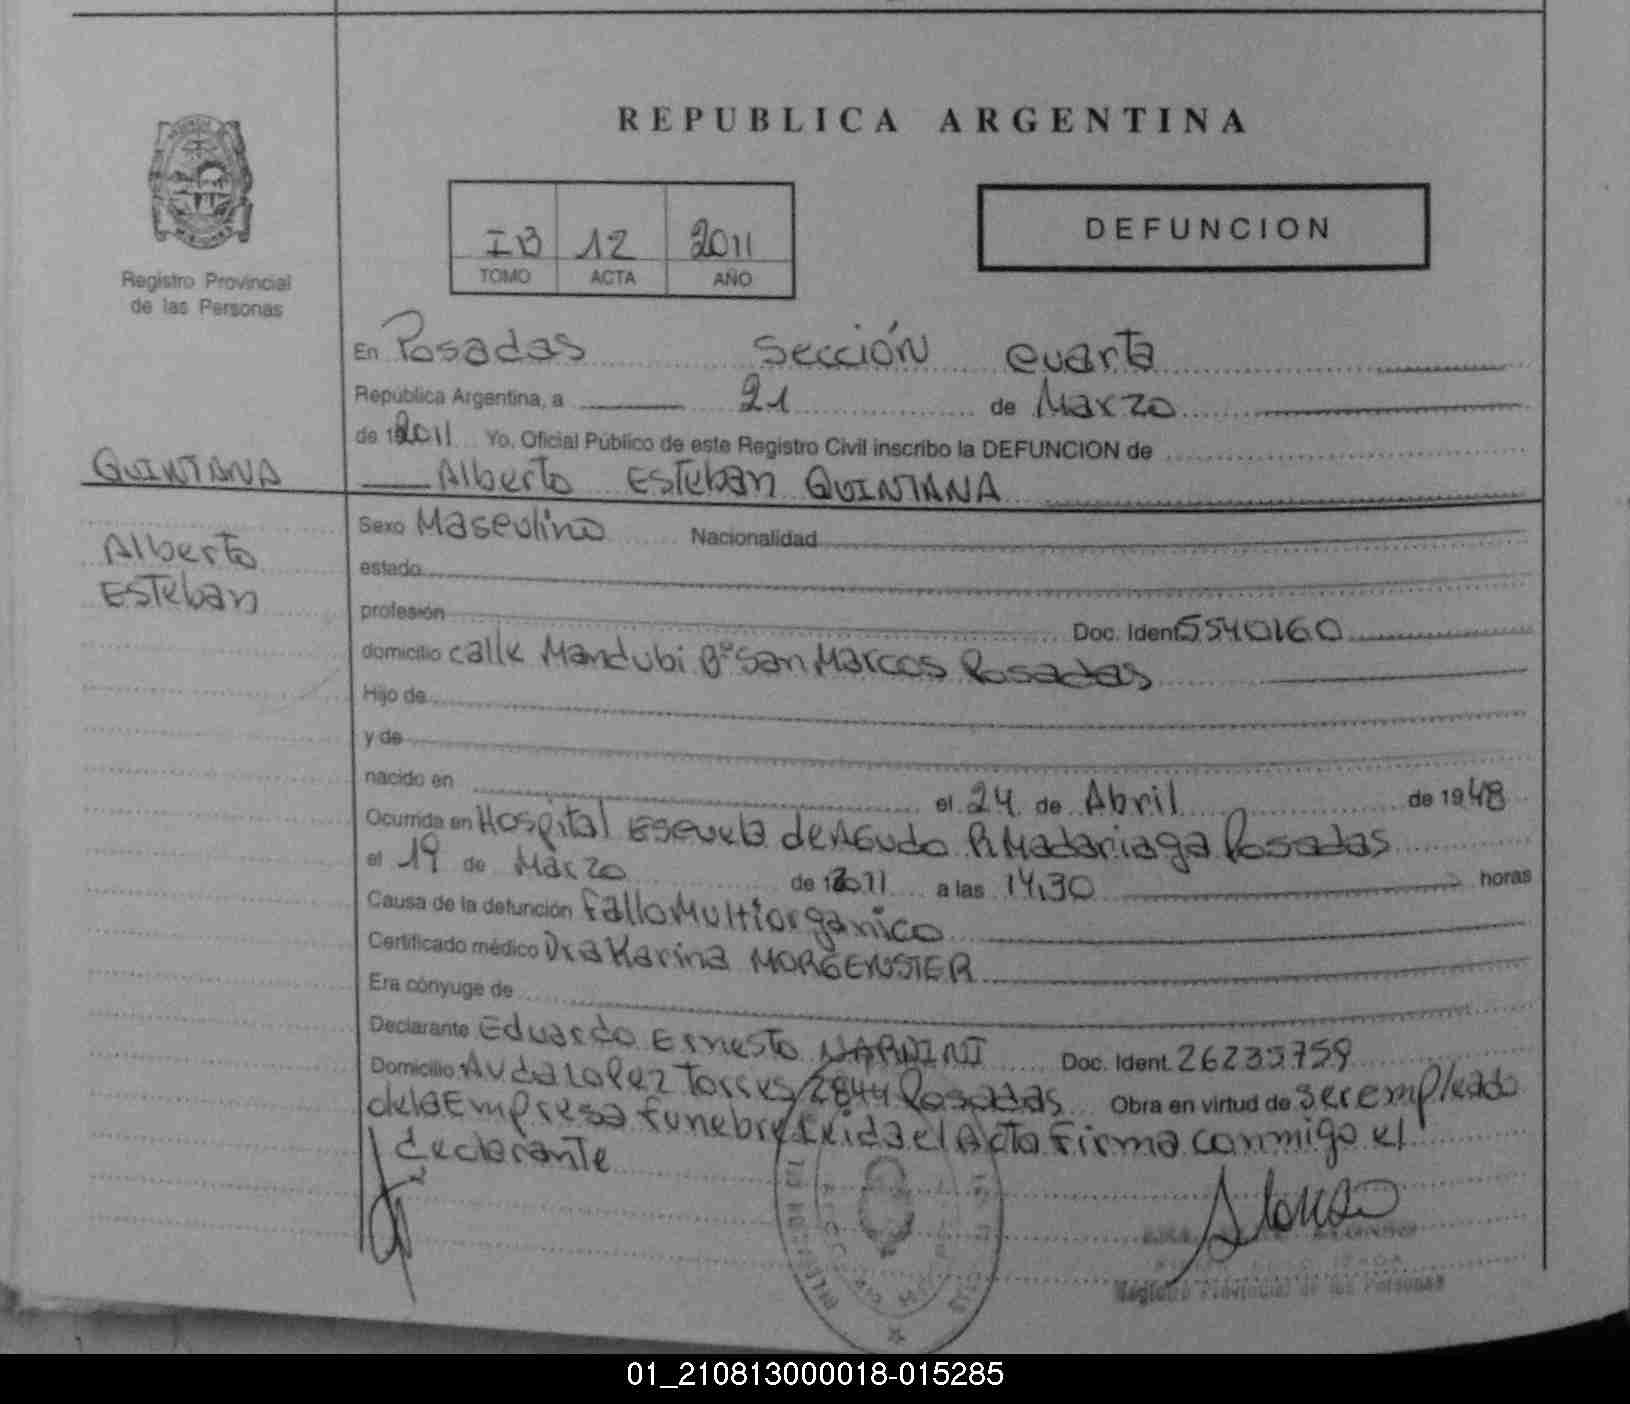 REPUBLICA ARGENTINA
IB 12 2011
TOMO ACTA AÑO
DEFUNCION
Registro Provincial
de las Personas
En Posadas Sección cuarta
República Argentina, a 21 de Marzo
de 2011 Yo, Oficial Público de este Registro Civil inscribo la DEFUNCION de
QUINTANA
Alberto Esteban QUINTANA
Alberto
Esteban
Sexo Masculino Nacionalidad
estado
profesión Doc. Ident 5540160
domicilio calle Mandubi Bº San Marcos Posadas
Hijo de
y de
nacido en el 24 de Abril de 1948
Ocurrida en Hospital Escuela de Agudo R Madariaga Posadas
el 19 de Marzo de 2011 a las 14,30 horas
Causa de la defunción fallo Multiorganico
Certificado médico Dra Karina MORGENSTER
Era cónyuge de
Declarante Eduardo Ernesto NARDINI Doc. Ident. 26235759
Domicilio Avda Lopez Torres 2844 Posadas Obra en virtud de ser empleado
de la Empresa funebre Leida el Acta Firma conmigo el
declarante
Registro Provincial de las Personas
01_210813000018-015285